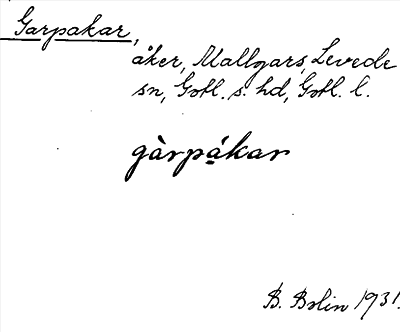 Garpakar,
åker, Mallgars, Levede
sn, Gotl. s. hd, Gotl. l.
gàrpạ́kar
B. Bolin 1931.